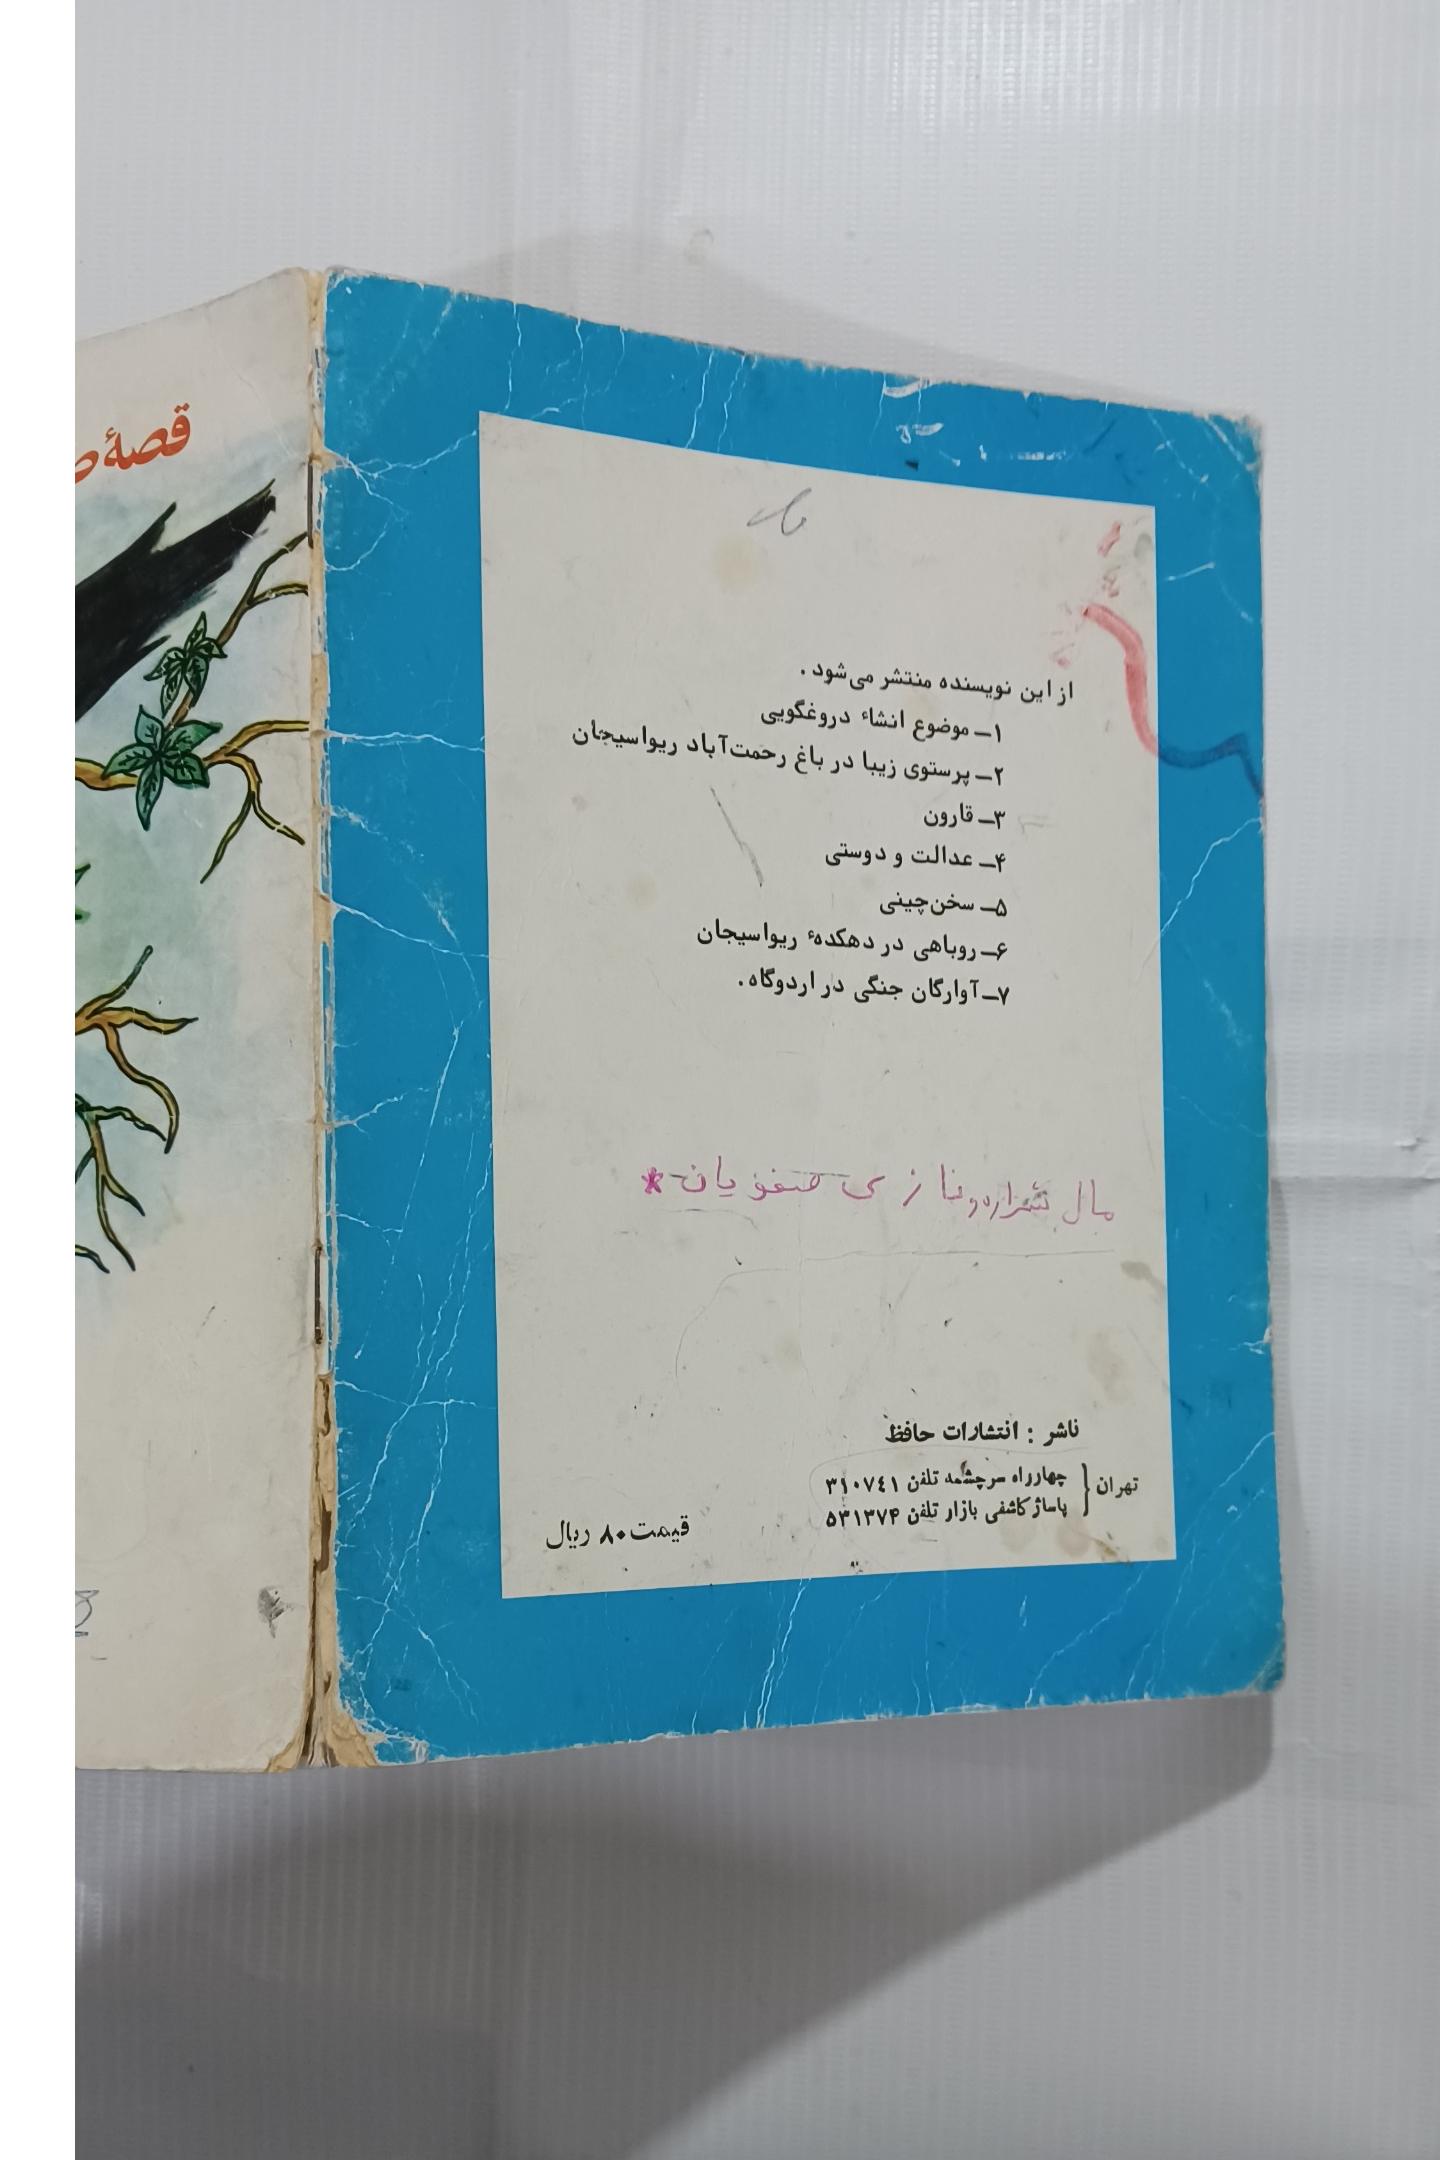 قصهٔ
از این نویسنده منتشر می‌شود.
۱ــ موضوع انشاء دروغگویی
۲ــ پرستوی زیبا در باغ رحمت‌آباد ریواسیجان
۳ــ قارون
۴ــ عدالت و دوستی
۵ــ سخن‌چینی
۶ــ روباهی در دهکدهٔ ریواسیجان
۷ــ آوارگان جنگی در اردوگاه.
مال صفویان*
ناشر : انتشارات حافظ
تهران { چهارراه سرچشمه تلفن ۳۱۰۷۴۱
پاساژ کاشفی بازار تلفن ۵۳۱۳۷۴
قیمت ۸۰ ریال